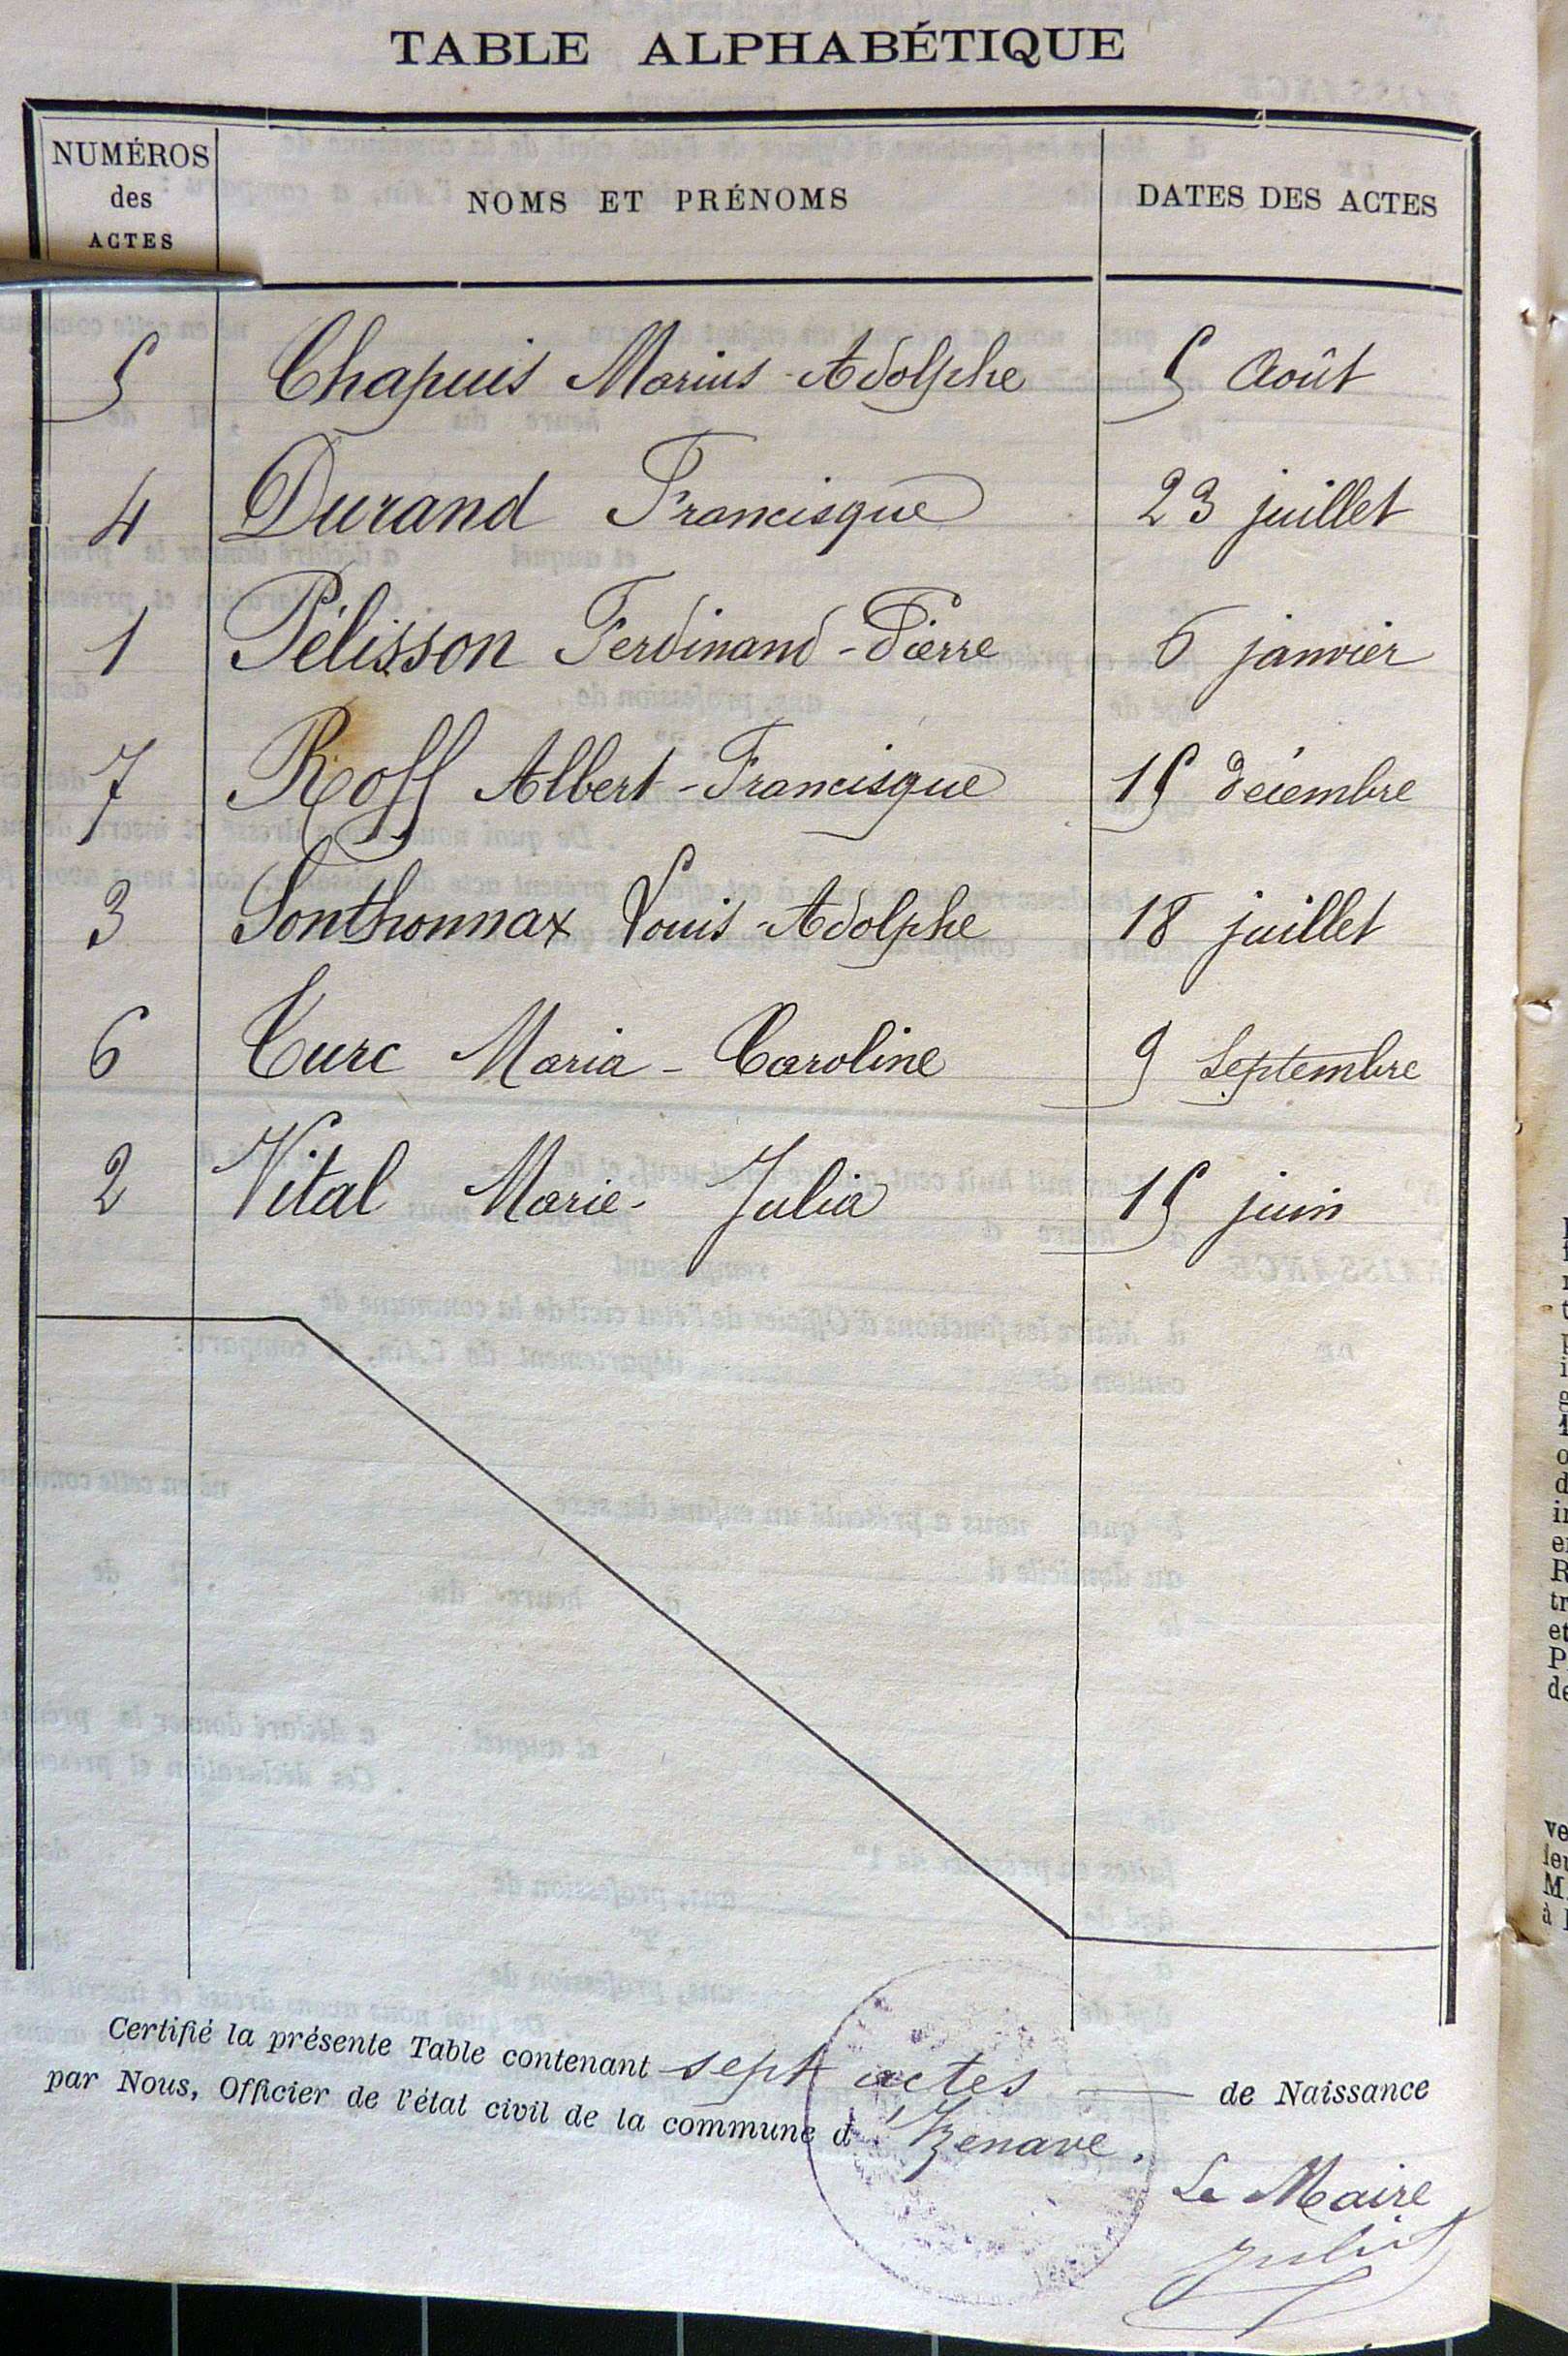 TABLE ALPHABÉTIQUE
NUMÉROS des ACTES NOMS ET PRÉNOMS DATES DES ACTES
5 Chapuis Marius-Adolphe 5 Août
4 Durand Francisque 23 juillet
1 Pélisson Ferdinand-Pierre 6 janvier
7 Roff Albert-Francisque 15 décembre
3 Sonthonnax Louis-Adolphe 18 juillet
6 Turc Maria-Caroline 9 Septembre
2 Vital Marie-Julia 15 juin
Certifié la présente Table contenant sept actes de Naissance
par Nous, Officier de l'état civil de la commune d'Izenave.
Le Maire